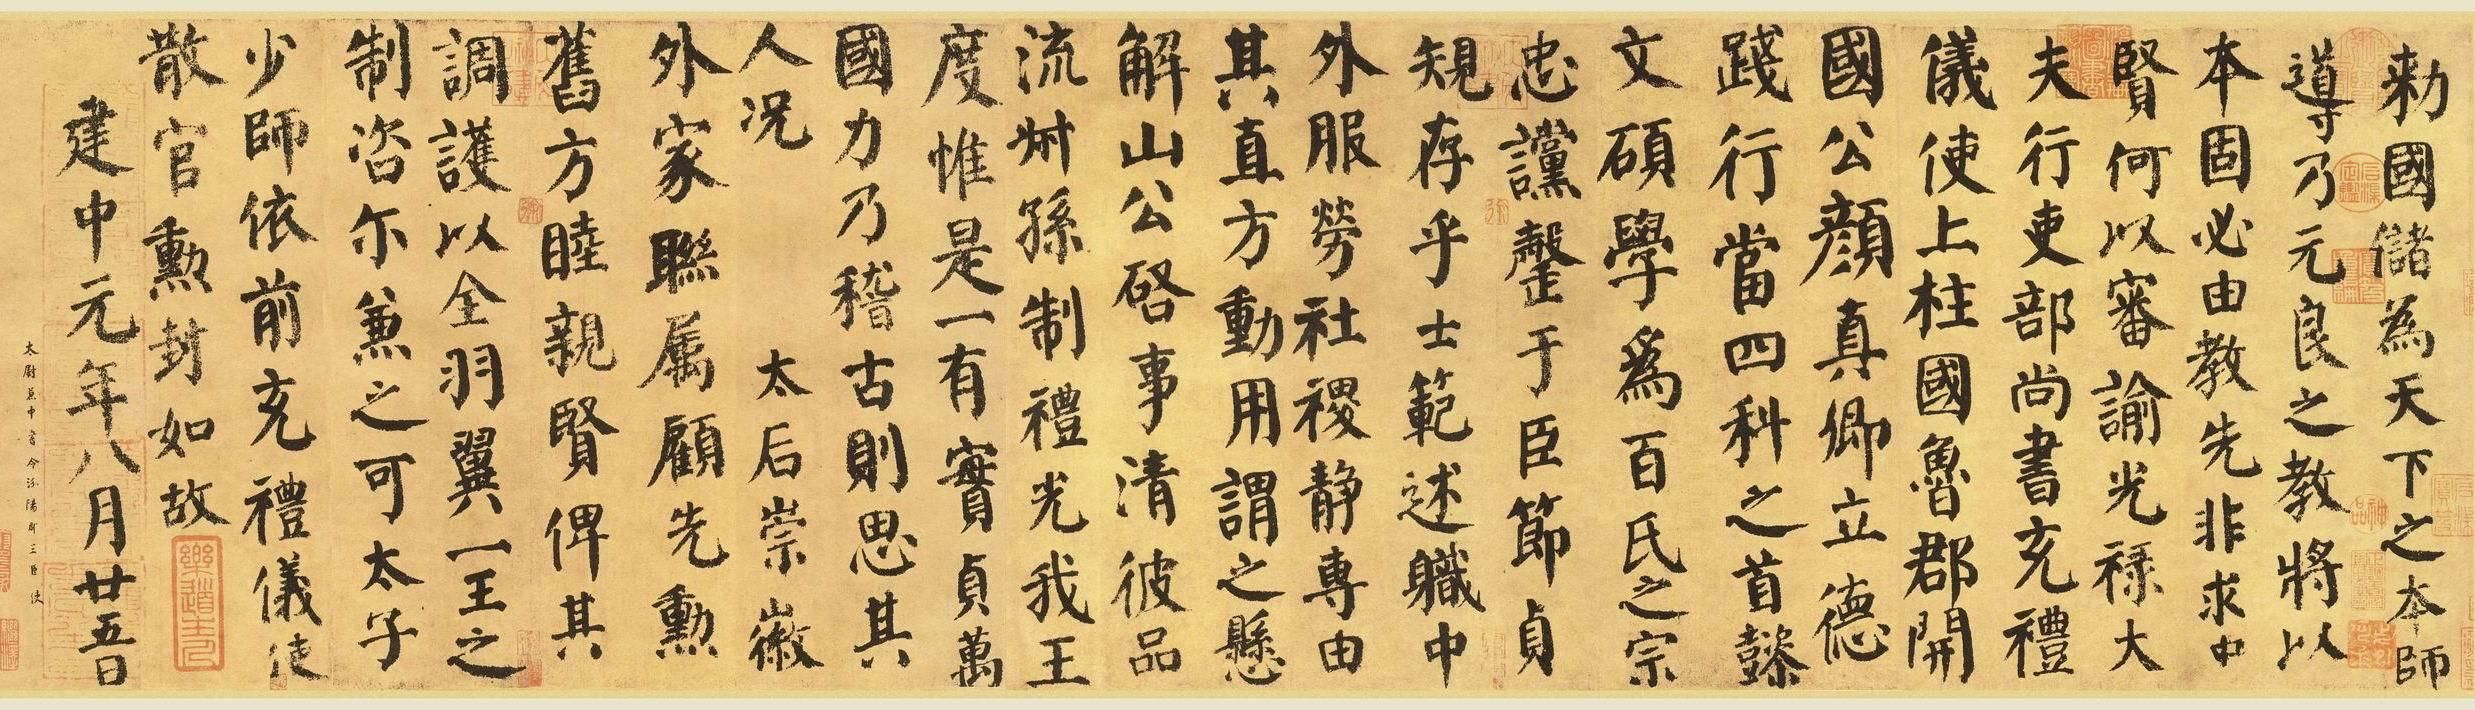 勅國儲為天下之本師
導乃元良之教將以
本固必由教先非求中
賢何以審諭光祿大
夫行吏部尚書充禮
儀使上柱國魯郡開
國公顏真卿立德
踐行當四科之首懿
文碩學爲百氏之宗
忠讜罄于臣節貞
規存乎士範述職中
外服勞社稷静專由
其直方動用謂之懸
解山公啓事清彼品
流叔孫制禮光我王
度惟是一有實貞萬
國力乃稽古則思其
人况 太后崇徽
外家聯属顧先勲
舊方睦親賢俾其
調護以全羽翼一王之
制咨尓兼之可太子
少師依前充禮儀使
散官勲封如故
建中元年八月廿五日
太尉兼中書令汾陽郡王臣使
樂道主人